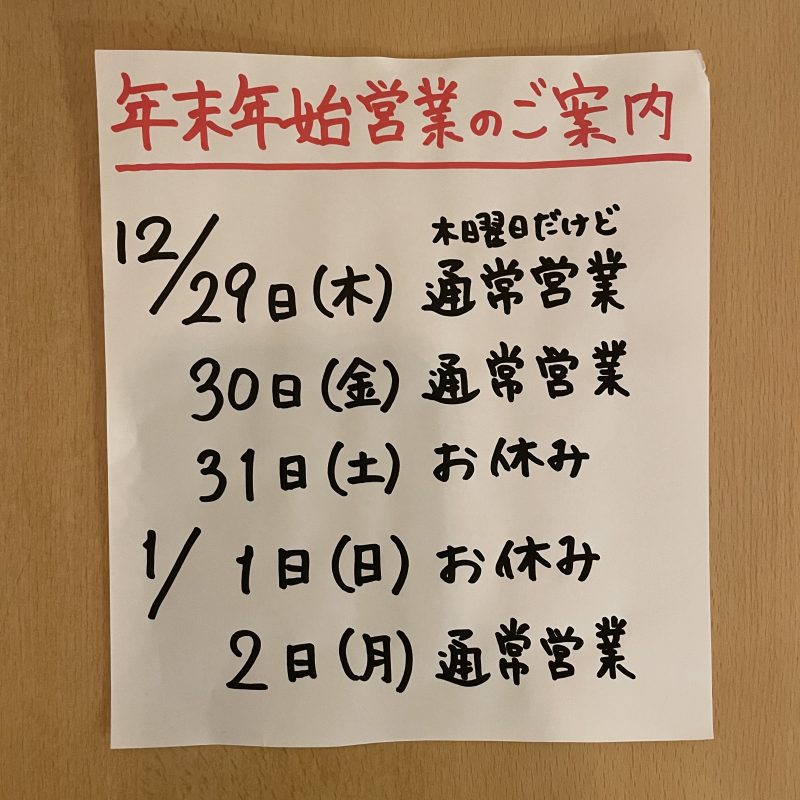 年末年始営業のご案内
木曜日だけど
12/29日(木) 通常営業
30日(金) 通常営業
31日(土) お休み
1/1日(日) お休み
2日(月) 通常営業